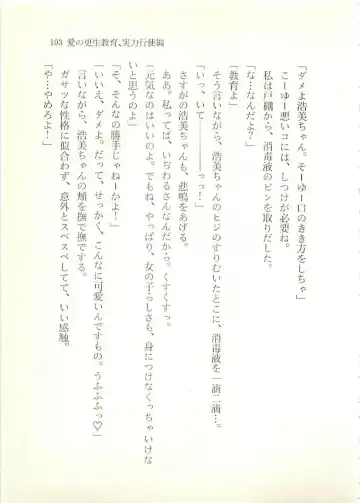 103 愛の更生教育、実力行使編
「ダメよ浩美ちゃん。そーゆー口のきき方をしちゃ」
こーゆー悪いコには、しつけが必要ね。
私は戸棚から、消毒液のビンを取りだした。
「な…なんだよ？」
「教育よ」
そう言いながら、浩美ちゃんのヒジのすりむいたとこに、消毒液を一滴二滴…。
「いっ、いて――――っっ！」
さすがの浩美ちゃんも、悲鳴をあげる。
ああ。私ってば、いぢわるさんなんだから。くすくすっ。
「元気なのはいいのよ。でもね、やっぱり、女の子らしさも、身につけなくっちゃいけな
いと思うのよ」
「そ、そんなの勝手じゃねーかよ！」
「いいえ、ダメよ。だって、せっかく、こんなに可愛いんですもの。うふふふっ♡」
言いながら、浩美ちゃんの頬を撫で撫でする。
ガサツな性格に似合わず、意外とスベスベしてて、いい感触。
「や…やめろよー！」